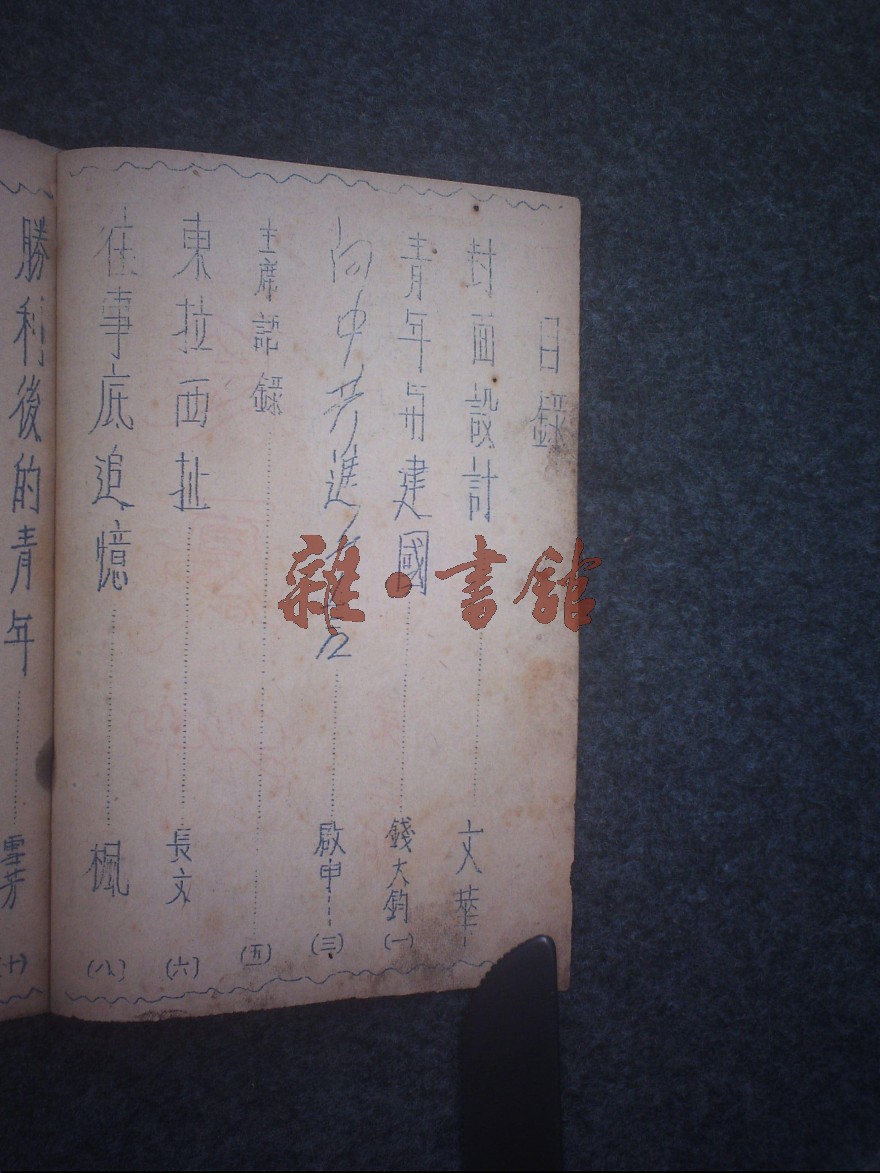 目錄
封面設計 文華
青年与建國 錢大鈞 (一)
向中共進 言 啟申 (三)
主席記錄 (五)
東拉西扯 長文 (六)
往事底追憶 楓 (八)
勝利後的青年 雪芳 (十)
雜·書舘